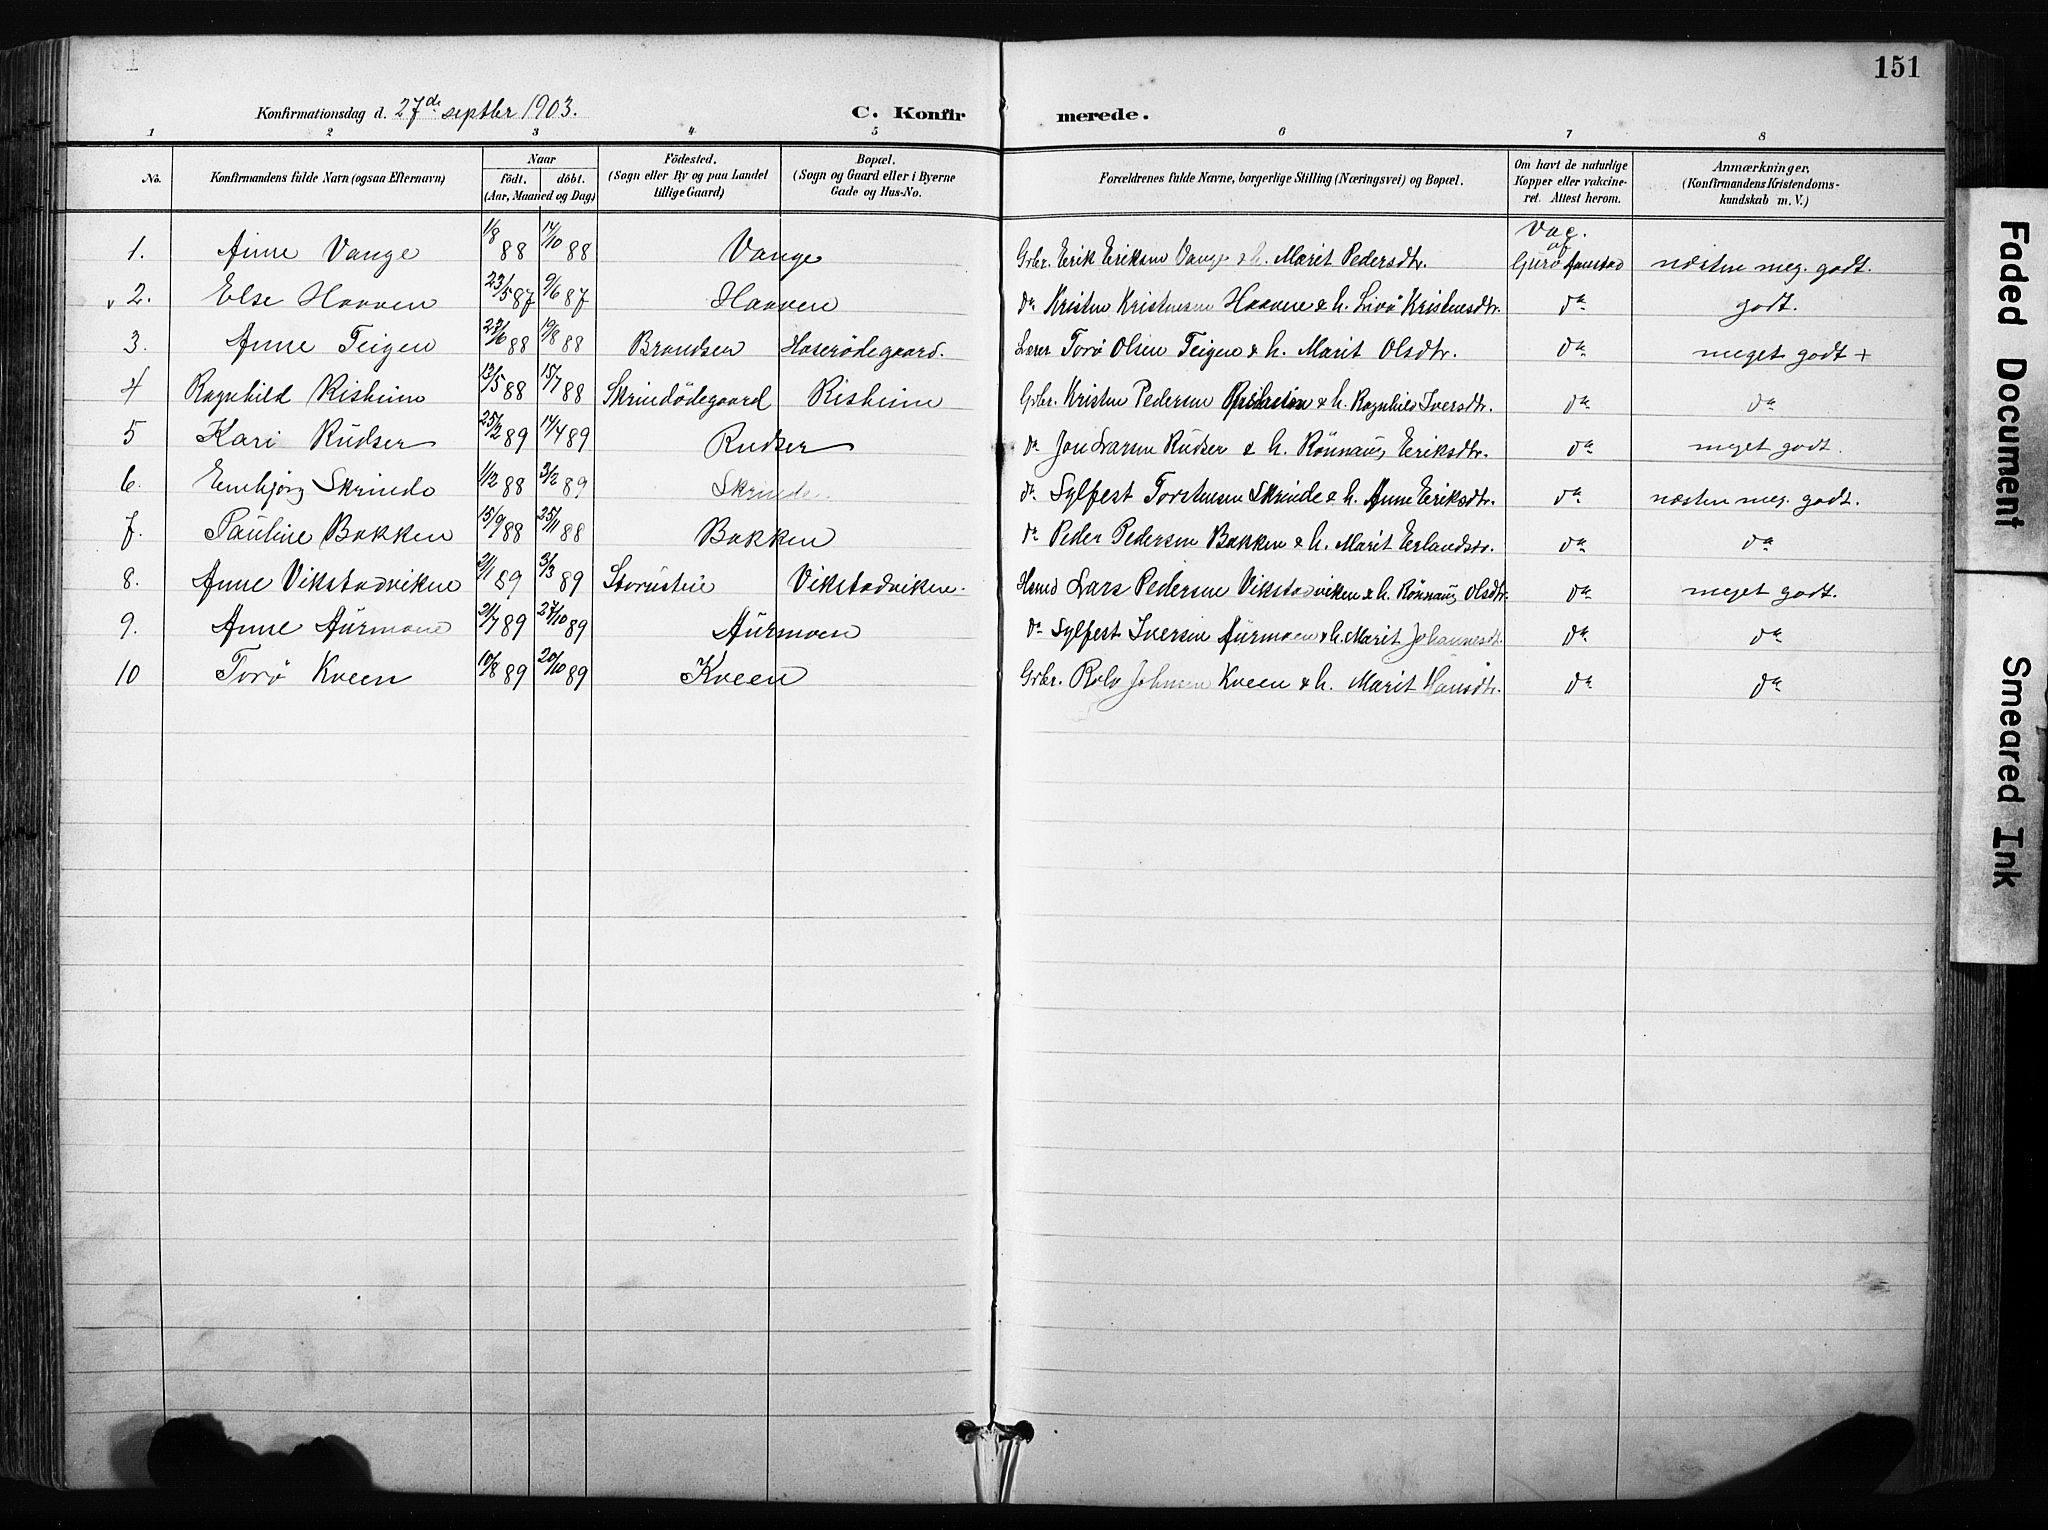 151
Konfirmationsdag d. 27de septbr 1903.
C. Konfirmerede.
1 2 3 4 5 6 7 8
No. Konfirmandens fulde Navn (ogsaa Efternavn) Naar født. døbt. (Aar, Maaned og Dag) Födested. (Sogn eller By og paa Landet tillige Gaard) Bopæl. (Sogn og Gaard eller i Byerne Gade og Hus-No. Forældrenes fulde Navne, borgerlige Stilling (Næringsvei) og Bopæl. Om havt de naturlige Kopper eller vakcineret. Attest herom. Anmærkninger, (Konfirmandens Kristendomskundskab m. V.)
1. Anne Vange 1/8 88 14/10 88 Vange Gbr. Erik Eriksen Vange & h. Marit Pedersdtr. Vac. af Guro næsten meg. godt.
2. Else Haaven 23/5 87 9/6 87 Haaven do Kristen Kristensen Haaven & h. Kristensdtr. do godt.
3. Anne Teigen 27/6 88 19/8 88 Brandsen Haserødegaard. Lærer Torø Olsen Teigen & h. Marit Olsdtr. do meget godt +
4 Ragnhild Risheim 13/5 88 15/7 88 Skrindødegaard Risheim Gbr. Kristen Pedersen & h. Ragnhild Iversdtr. do do
5 Kari Rudser 25/2 89 14/4 89 Rudser do Jon Larsen Rudser & h. Rønnaug Eriksdtr. do meget godt.
6. Embjørg Skrinde 1/12 88 3/2 89 Skrinde do Sylfest Torstensen Skrinde & h. Anne Eriksdtr. do næsten meg. godt.
7. Pauline Bakken 15/9 88 25/11 88 Bakken do Peder Pedersen Bakken & h. Marit Erlandsdtr. do do
8. Anne Vikstadviken 21/1 89 3/3 89 Storusteie Vikstadviken. Hsmd Lars Pedersen Vikstadviken & h. Rønnaug Olsdtr. do meget godt.
9. Anne Aurmoen 21/7 89 27/10 89 Aurmoen do Sylfest Iversen Aurmoen & h. Marit Johannesdt. do do
10 Torø Kveen 10/8 89 20/10 89 Kveen Gbr. Rolv Johnsen Kveen & h. Marit Hansdtr. do do
Faded Document
Smeared Ink